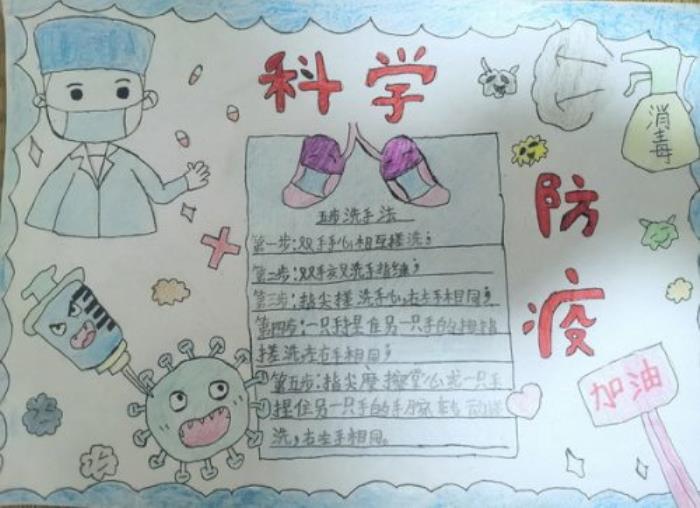 科学
防疫
消毒
五步洗手法
第一步:双手手心相互搓洗;
第二步:双手交叉洗手指缝;
第三步:指尖搓洗手心,左右手相同;
第四步:一只手捏住另一只手的拇指
搓洗左右手相同;
第五步:指尖摩擦掌心或一只手
捏住另一只手的手腕转动搓
洗,右左手相同。
加油